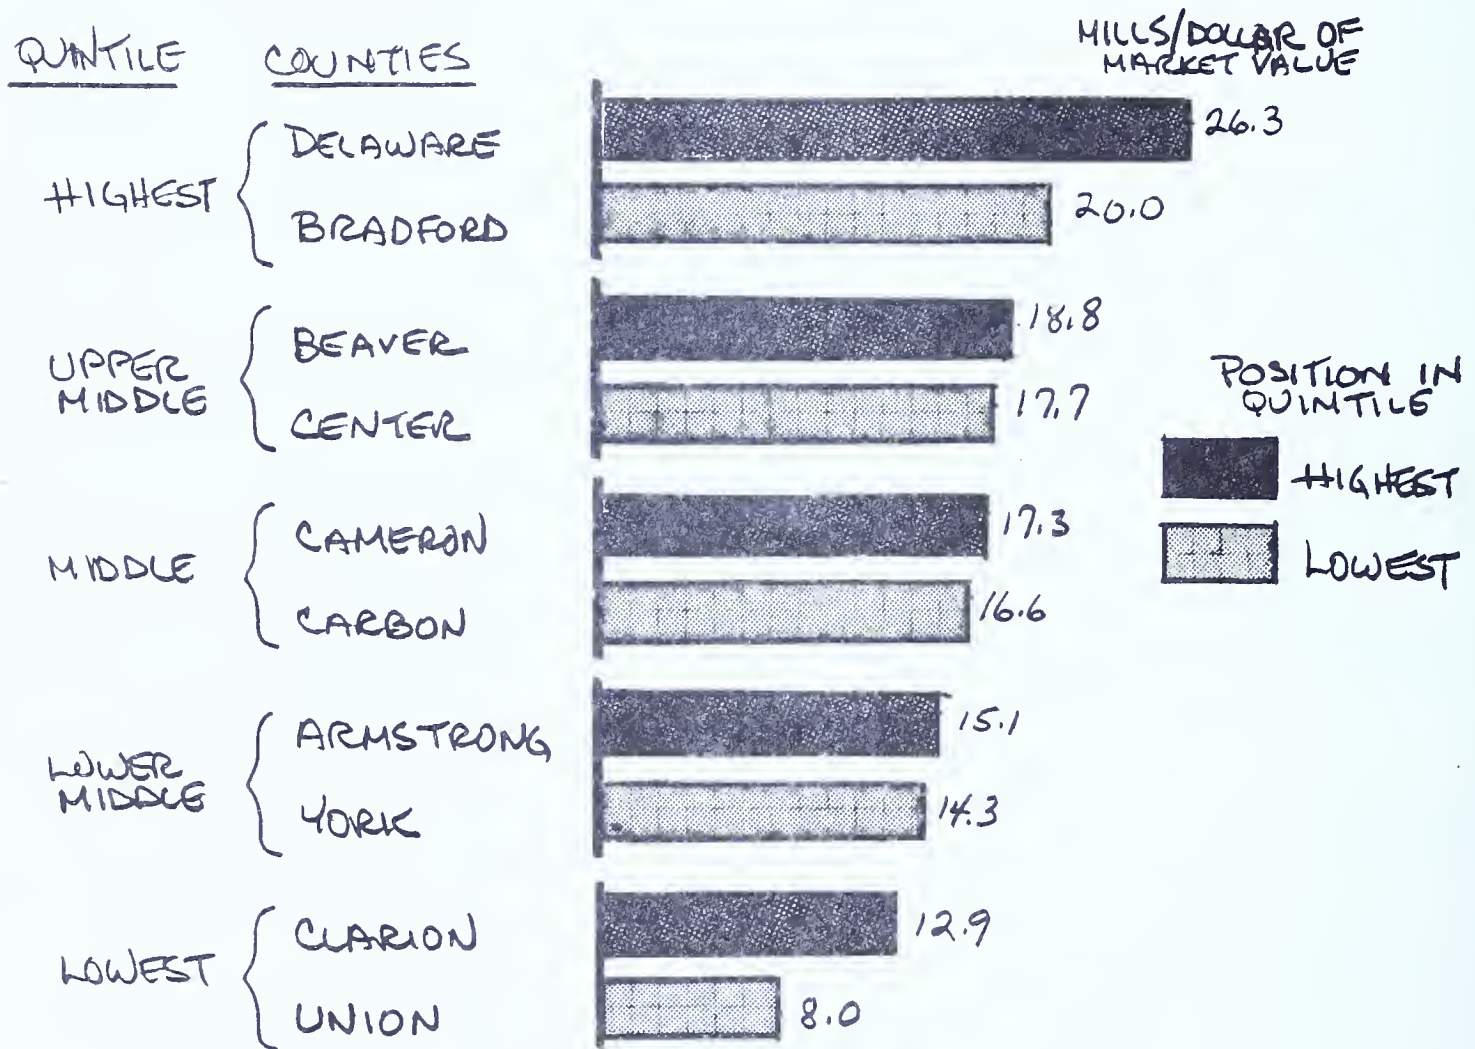 QUINTILE COUNTIES
MILLS/DOLLAR OF
MARKET VALUE
HIGHEST
DELAWARE 26.3
BRADFORD 20.0
UPPER
MIDDLE
BEAVER 18.8
CENTER 17.7
MIDDLE
CAMERON 17.3
CARBON 16.6
LOWER
MIDDLE
ARMSTRONG 15.1
YORK 14.3
LOWEST
CLARION 12.9
UNION 8.0
POSITION IN
QUINTILE
HIGHEST
LOWEST